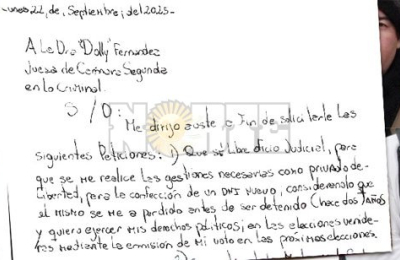 Lunes 22, de, Septiembre, del 2025-
A La Dra "Dolly" Fernandez
Jueza de Camara Segunda
en lo Criminal.
S / D:
Me dirijo a uste a fin de solicitarle las
siguientes Peticiones: 1) Que se Libre oficio Judicial, para
que se me realice las gestiones necesarias como privado de-
Libertad, para la confección de un DNI Nuevo, considerando que
el mismo se me a perdido antes de ser detenido (hace dos) Años
y quiero ejercer mis derechos políticos; en las elecciones venide-
ras mediante la emisión de mi voto en las proximas elecciones.
NORTE